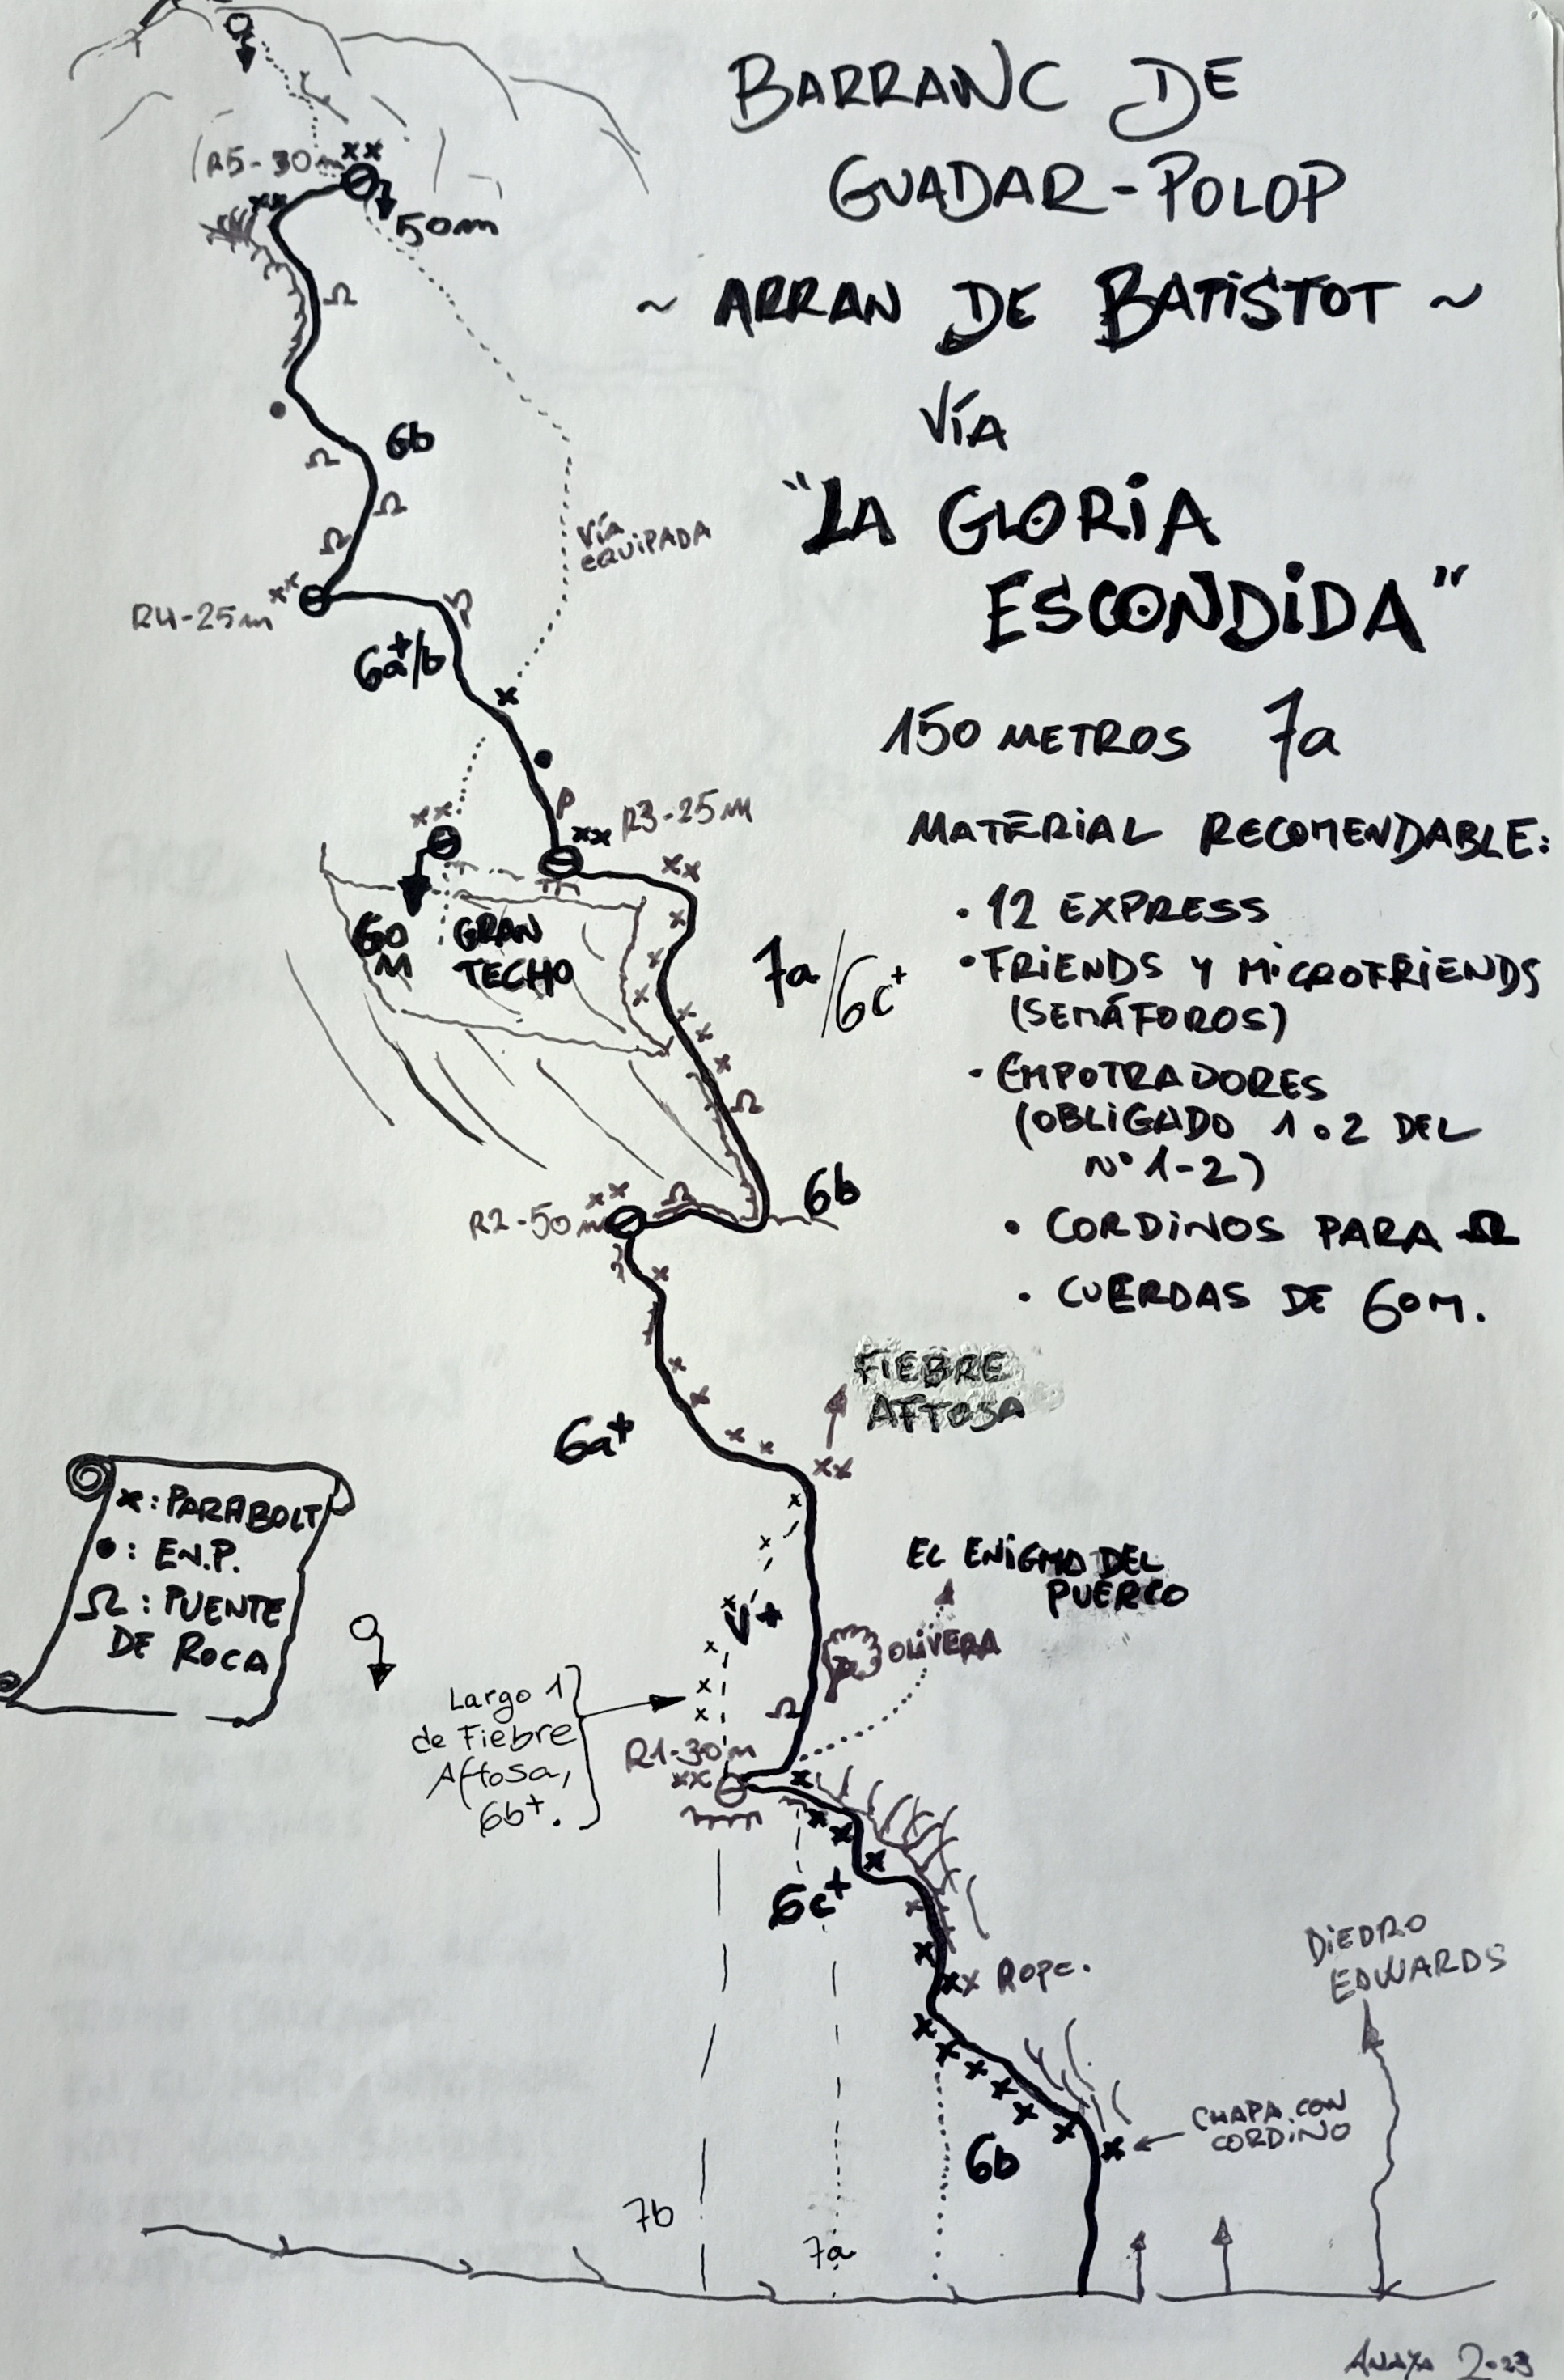 BARRANC DE
GUADAR-POLOP
~ ARRAN DE BATISTOT ~
VÍA
"LA GLORIA
ESCONDIDA"
150 METROS 7a
MATERIAL RECOMENDABLE:
• 12 EXPRESS
• FRIENDS Y MICROFRIENDS
(SEMÁFOROS)
• EMPOTRADORES
(OBLIGADO 1 o 2 DEL
Nº 1-2)
• CORDINOS PARA Ω
• CUERDAS DE 60M.
R5-30m
50m
6b
VÍA
EQUIPADA
R4-25m
6a+/b
R3-25M
60
M
GRAN
TECHO
7a/6c+
6b
R2-50m
FIEBRE
AFTOSA
6a+
x: PARABOLT
•: EN.P.
Ω: PUENTE
DE ROCA
EL ENIGMA DEL
PUERCO
V+
OLIVERA
Largo 1
de Fiebre
Aftosa,
6b+.
R1-30m
6c+
DIEDRO
EDWARDS
CHAPA CON
CORDINO
6b
7b
7a
ANAYA 2023